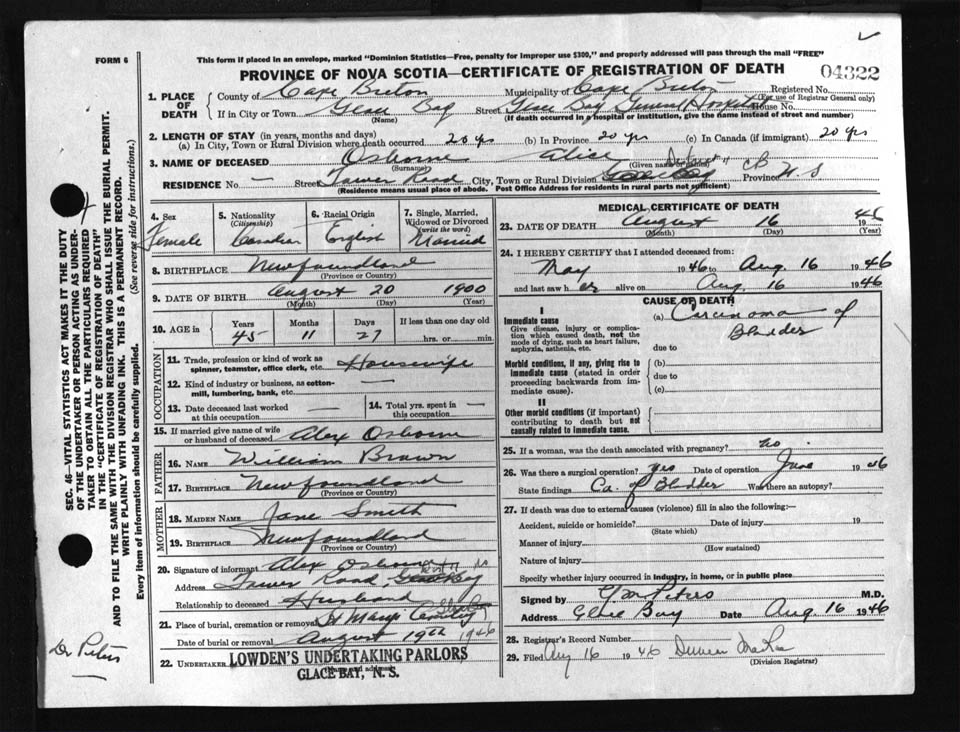 FORM 6
This form if placed in an envelope, marked "Dominion Statistics—Free, penalty for improper use $300," and properly addressed will pass through the mail "FREE"
PROVINCE OF NOVA SCOTIA—CERTIFICATE OF REGISTRATION OF DEATH 04322
1. PLACE OF DEATH
County of Cape Breton Municipality of Cape Breton Registered No.
(For use of Registrar General only)
If in City or Town Glace Bay Street Glace Bay General Hospital House No.
(Name) (If death occurred in a hospital or institution, give the name instead of street and number)
2. LENGTH OF STAY (in years, months and days)
(a) In City, Town or Rural Division where death occurred 20 yrs (b) In Province 20 yrs (c) In Canada (if immigrant) 20 yrs
3. NAME OF DECEASED Osborne Alice
(Surname) (Given name
RESIDENCE No. — Street Tower Road City, Town or Rural Division Glace Bay CB Province N.S
(Residence means usual place of abode. Post Office Address for residents in rural parts not sufficient)
4. Sex Female
5. Nationality (Citizenship) Canadian
6. Racial Origin English
7. Single, Married, Widowed or Divorced (write the word) Married
8. BIRTHPLACE Newfoundland
(Province or Country)
9. DATE OF BIRTH August 20 1900
(Month) (Day) (Year)
10. AGE in Years 45 Months 11 Days 27 If less than one day old hrs. or min.
OCCUPATION
11. Trade, profession or kind of work as spinner, teamster, office clerk, etc. Housewife
12. Kind of industry or business, as cotton-mill, lumbering, bank, etc. —
13. Date deceased last worked at this occupation —
14. Total yrs. spent in this occupation —
15. If married give name of wife or husband of deceased Alex Osborne
FATHER
16. NAME William Brown
17. BIRTHPLACE Newfoundland
(Province or Country)
MOTHER
18. MAIDEN NAME Jane Smith
19. BIRTHPLACE Newfoundland
(Province or Country)
20. Signature of informant Alex Osborne
Address Tower Road Glace Bay
Relationship to deceased Husband
21. Place of burial, cremation or removal St Marys Cemetery
Date of burial or removal August 19th 1946
22. UNDERTAKER LOWDEN'S UNDERTAKING PARLORS
(Name and address)
GLACE BAY, N. S.
MEDICAL CERTIFICATE OF DEATH
23. DATE OF DEATH August 16 1946
(Month) (Day) (Year)
24. I HEREBY CERTIFY that I attended deceased from:
May 1946 to Aug. 16 1946
and last saw her alive on Aug. 16 1946
CAUSE OF DEATH
I
Immediate cause
Give disease, injury or complication which caused death, not the mode of dying, such as heart failure, asphyxia, asthenia, etc.
(a) Carcinoma of Bladder
due to
Morbid conditions, if any, giving rise to immediate cause (stated in order proceeding backwards from immediate cause).
(b)
due to
(c)
II
Other morbid conditions (if important) contributing to death but not causally related to immediate cause.
25. If a woman, was the death associated with pregnancy? no
26. Was there a surgical operation? Yes Date of operation June 1946
State findings Ca. of Bladder Was there an autopsy?
27. If death was due to external causes (violence) fill in also the following:—
Accident, suicide or homicide? Date of injury 19
(State which)
Manner of injury
(How sustained)
Nature of injury
Specify whether injury occurred in industry, in home, or in public place
Signed by Peters M.D.
Address Glace Bay Date Aug. 16 1946
28. Registrar's Record Number
29. Filed Aug 16 1946 Duncan
(Division Registrar)
SEC. 46—VITAL STATISTICS ACT MAKES IT THE DUTY
OF THE UNDERTAKER OR PERSON ACTING AS UNDER-
TAKER TO OBTAIN ALL THE PARTICULARS REQUIRED
IN THE "CERTIFICATE OF REGISTRATION OF DEATH"
AND TO FILE THE SAME WITH THE DIVISION REGISTRAR WHO SHALL ISSUE THE BURIAL PERMIT.
WRITE PLAINLY WITH UNFADING INK. THIS IS A PERMANENT RECORD.
Every item of information should be carefully supplied. (See reverse side for instructions.)
Dr Peters